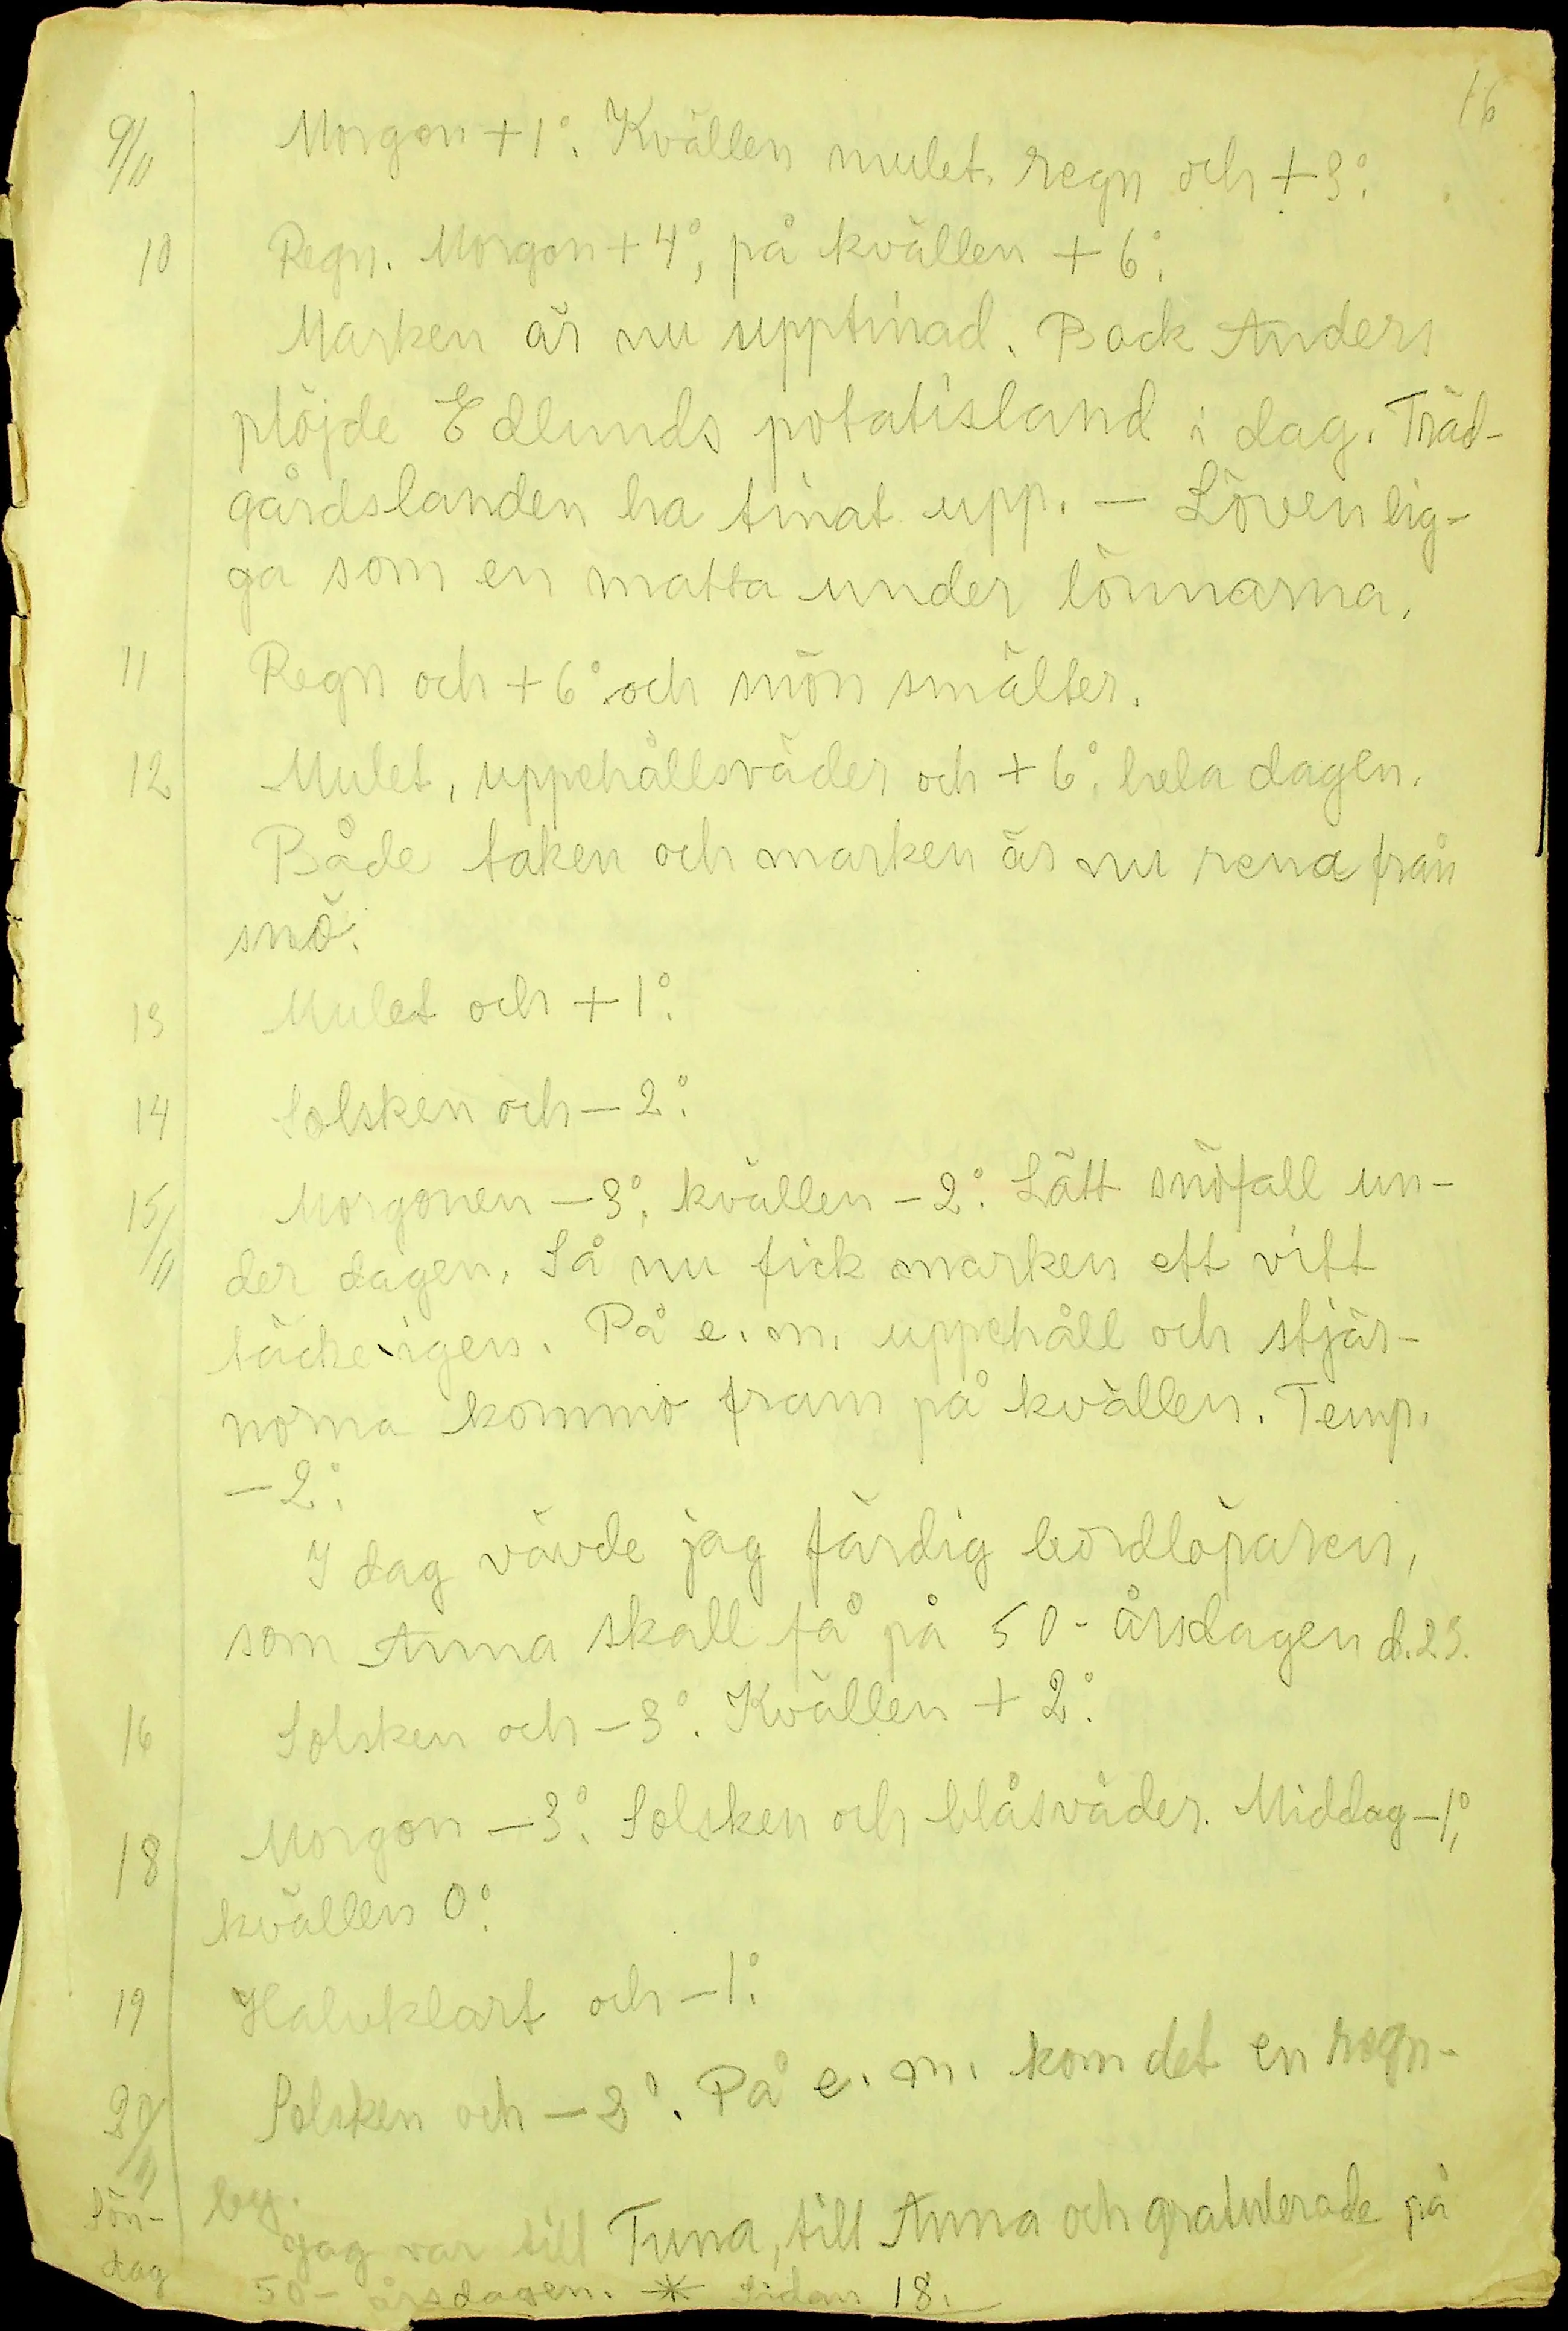 16
9/11 Morgon +1°. Kvällen mulet, regn och +3°.
10 Regn. Morgon +4°, på kvällen +6°.
Marken är nu upptinad. Back Anders
plöjde Edlunds potatisland i dag. Träd-
gårdslanden ha tinat upp. — Löven lig-
ga som en matta under lönnarna.
11 Regn och +6° och snön smälter.
12 Mulet, uppehållsväder och +6° hela dagen.
Både taken och marken är nu rena från
snö.
13 Mulet och +1°.
14 Solsken och -2°.
15/11 Morgonen -3°, kvällen -2°. Lätt snöfall un-
der dagen. Så nu fick marken ett vitt
täcke igen. På e.m. uppehåll och stjär-
norna kommo fram på kvällen. Temp.
-2°.
I dag vävde jag färdig bordlöparen,
som Anna skall få på 50-årsdagen d. 23.
16 Solsken och -3°. Kvällen +2°.
18 Morgon -3°. Solsken och blåsväder. Middag -1°,
kvällen 0°.
19 Halvklart och -1°.
20/11 Solsken och -2°. På e.m. kom det en regn-
Sön- by.
dag Jag var till Tuna, till Anna och gratulerade på
50-årsdagen. * sidan 18.